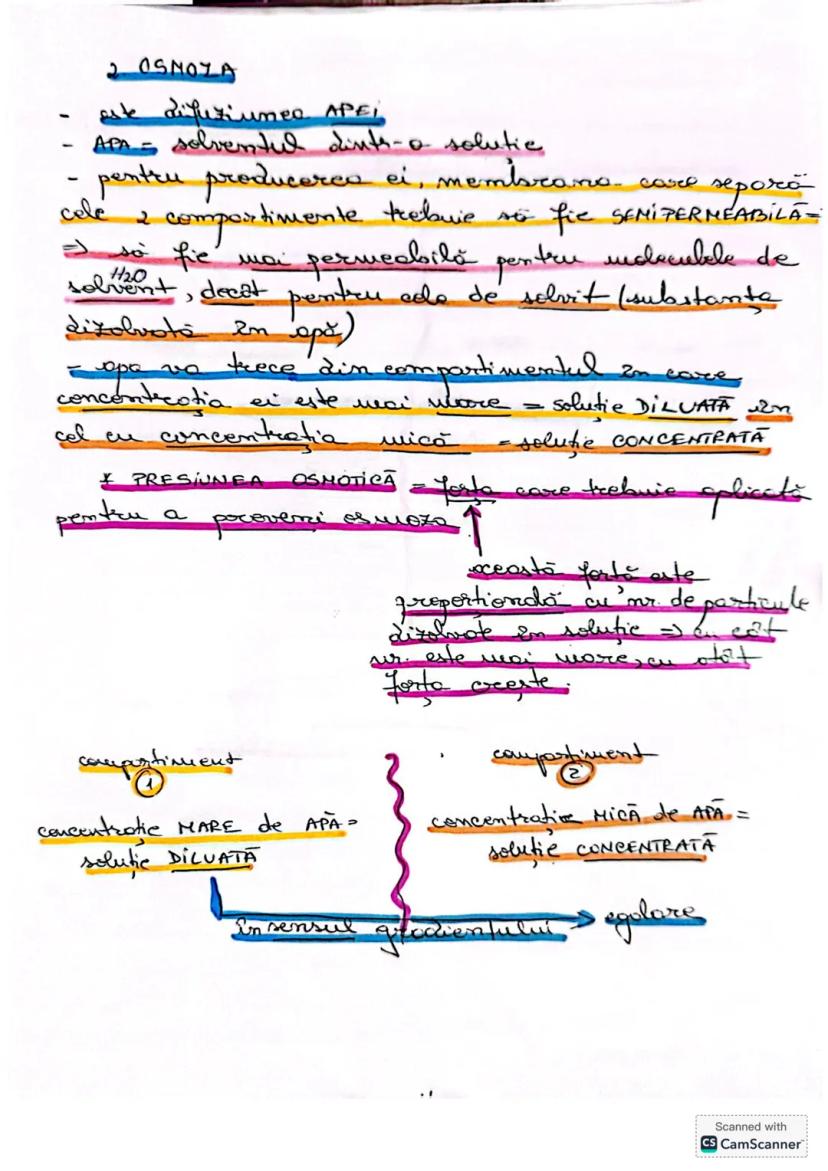 2 OSMOZA
- este difuziunea APEI
- APA = solventul dintr-o soluție
- pentru producerea ei, membrana care separă
cele 2 compartimente trebuie să fie SEMIPERMEABILĂ =
=> să fie mai permeabilă pentru moleculele de
H2O
solvent, decât pentru cele de solvit (substanța
dizolvată în apă)
- apa va trece din compartimentul în care
concentrația ei este mai mare = soluție DILUATĂ în
cel cu concentrația mică = soluție CONCENTRATĂ
* PRESIUNEA OSMOTICĂ = forța care trebuie aplicată
pentru a preveni osmoza
această forță este
proporțională cu nr. de particule
dizolvate în soluție => cu cât
nr. este mai mare, cu atât
forța crește.
compartiment
1
compartiment
2
concentrație MARE de APĂ =
soluție DILUATĂ
concentrație MICĂ de APĂ =
soluție CONCENTRATĂ
în sensul gradientului
egalare
Scanned with
CS CamScanner